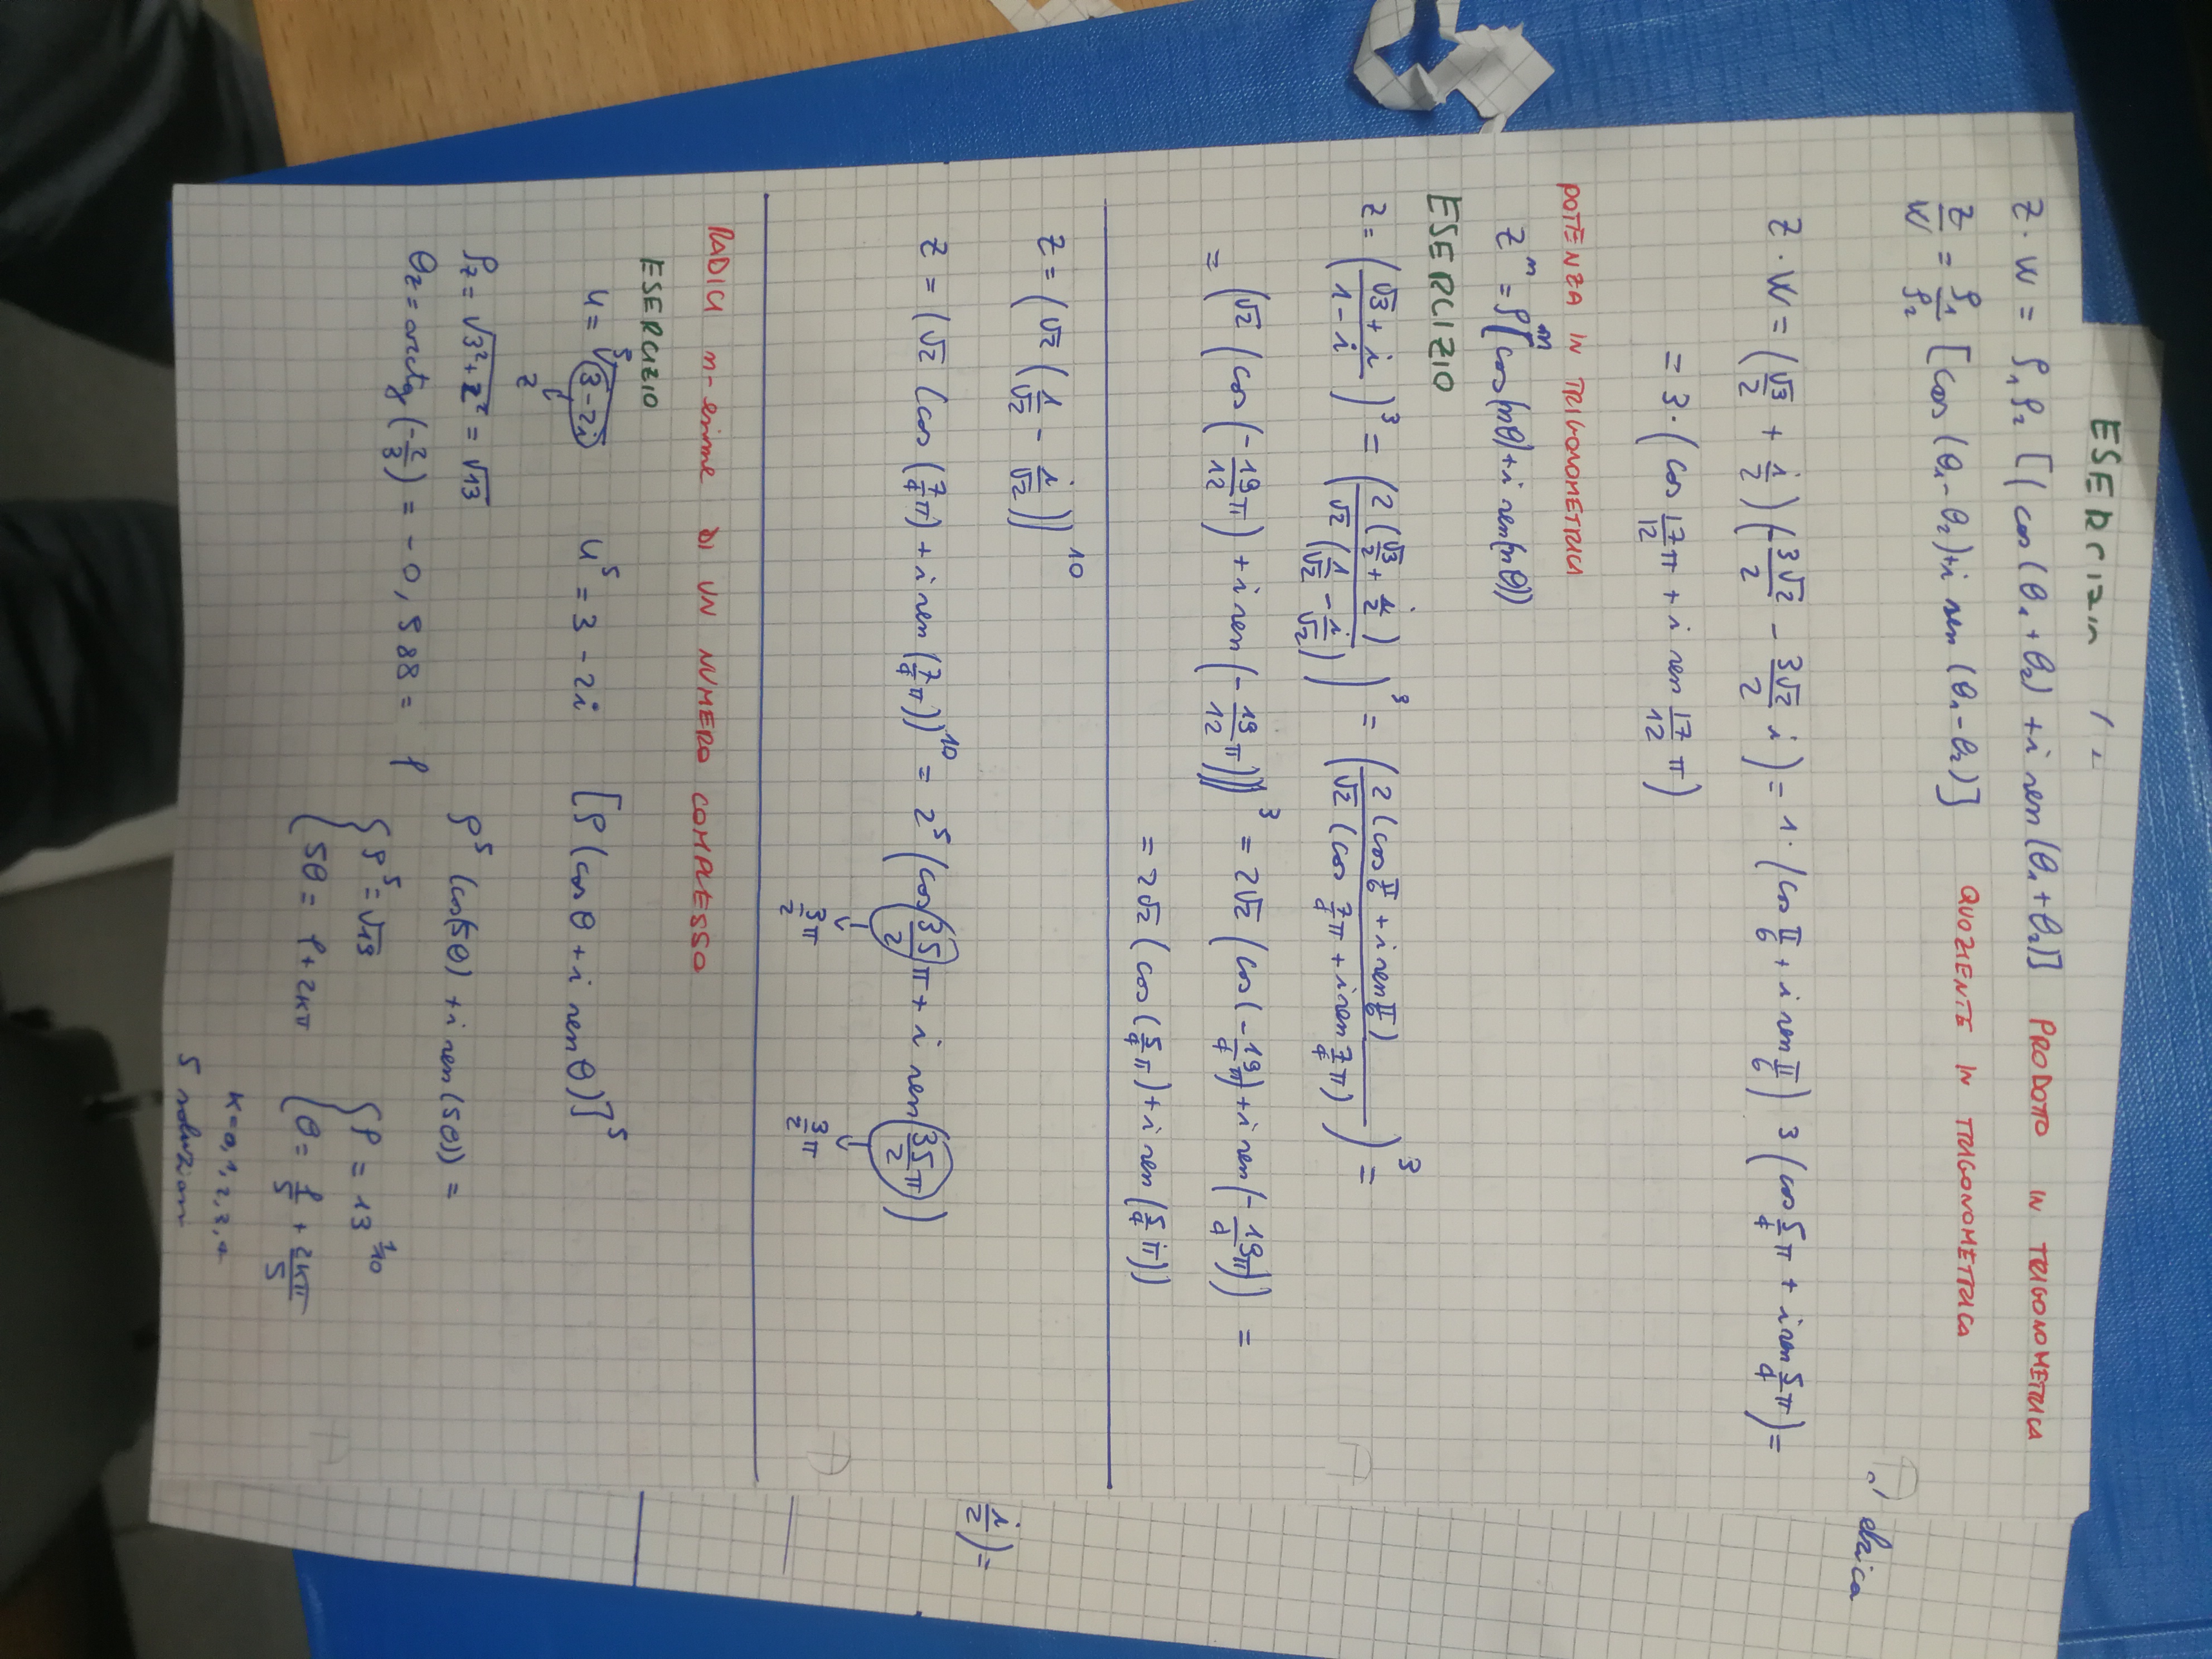 ESERCIZIO
z · w = ρ₁ρ₂ [(cos (θ₁ + θ₂) + i sen (θ₁ + θ₂)] PRODOTTO IN TRIGONOMETRICA
z/w = ρ₁/ρ₂ [cos (θ₁ - θ₂) + i sen (θ₁ - θ₂)] QUOZIENTE IN TRIGONOMETRICA
z · w = (√3/2 + i/2) (- 3√2/2 - 3√2/2 i) = 1 · (cos π/6 + i sen π/6) 3 (cos 5/4 π + i sen 5/4 π) =
= 3 · (cos 17/12 π + i sen 17/12 π)
POTENZA IN TRIGONOMETRICA
zⁿ = ρⁿ (cos (nθ) + i sen (nθ))
ESERCIZIO
z = ((√3 + i)/(1 - i))³ = (2 (√3/2 + i/2) / √2 (1/√2 - i/√2))³ = (2 (cos π/6 + i sen π/6) / √2 (cos 7/4 π + i sen 7/4 π))³ =
= (√2 (cos (- 19/12 π) + i sen (- 19/12 π)))³ = 2√2 (cos (- 19/4 π) + i sen (- 19/4 π)) =
= 2√2 (cos (5/4 π) + i sen (5/4 π))
z = (√2 (1/√2 - i/√2))¹⁰
z = (√2 (cos (7/4 π) + i sen (7/4 π))¹⁰ = 2⁵ (cos 35/2 π + i sen (35/2 π))
3/2 π 3/2 π
RADICI n-esime DI UN NUMERO COMPLESSO
ESERCIZIO
u = ⁵√(3 - 2i) u⁵ = 3 - 2i [ρ (cos θ + i sen θ)]⁵
z
ρz = √3² + 2² = √13 ρ⁵ (cos (5θ) + i sen (5θ)) =
θz = arctg (- 2/3) = - 0,588 = φ
{ ρ⁵ = √13 { ρ = 13^1/10
5θ = φ + 2kπ θ = φ/5 + 2kπ/5
k = 0, 1, 2, 3, 4
5 soluzioni
i/2) =